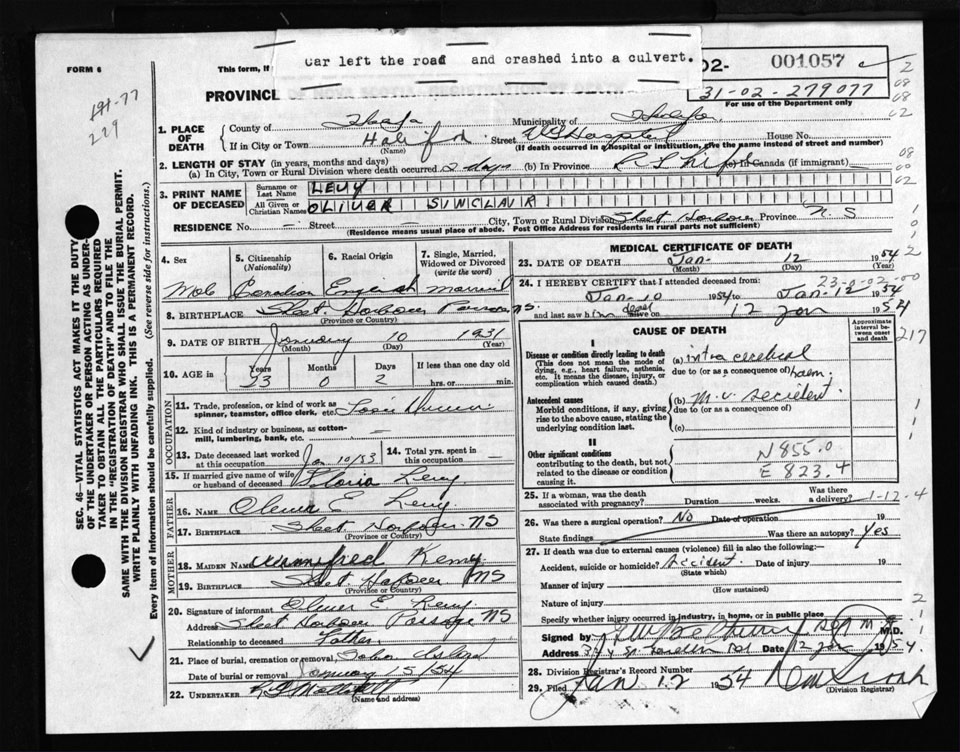 FORM 6
This form, if
Car left the road and crashed into a culvert.
02- 001057
31-02-279077
For use of the Department only
PROVINCE OF NOVA SCOTIA—REGISTRATION OF DEATH
191-77
229
1. PLACE OF DEATH
County of
Municipality of
If in City or Town Halifax (Name) Street VG Hospital House No.
(If death occurred in a hospital or institution, give the name instead of street and number)
2. LENGTH OF STAY (in years, months and days)
(a) In City, Town or Rural Division where death occurred 2 days (b) In Province (c) In Canada (if immigrant)
3. PRINT NAME OF DECEASED
Surname or Last Name LEVY
All Given or Christian Names OLIVER SINCLAIR
RESIDENCE No. — Street — City, Town or Rural Division Sheet Harbour Province N.S
(Residence means usual place of abode. Post Office Address for residents in rural parts not sufficient)
4. Sex
5. Citizenship (Nationality)
6. Racial Origin
7. Single, Married, Widowed or Divorced (write the word)
Male Canadian English married
8. BIRTHPLACE Sheet Harbour Passage NS.
(Province or Country)
9. DATE OF BIRTH January 10 1931
(Month) (Day) (Year)
10. AGE in Years Months Days If less than one day old
23 0 2 hrs. or min.
OCCUPATION
11. Trade, profession, or kind of work as spinner, teamster, office clerk, etc.
12. Kind of industry or business, as cotton-mill, lumbering, bank, etc. —
13. Date deceased last worked at this occupation Jan 10/53
14. Total yrs. spent in this occupation —
15. If married give name of wife or husband of deceased Gloria Levy
FATHER
16. NAME Oliver E Levy
17. BIRTHPLACE Sheet Harbour NS
(Province or Country)
MOTHER
18. MAIDEN NAME Winnifred
19. BIRTHPLACE Sheet Harbour NS
(Province or Country)
20. Signature of informant Oliver E. Levy
Address Sheet Harbour Passage NS
Relationship to deceased Father.
21. Place of burial, cremation or removal
Date of burial or removal January 15/54
22. UNDERTAKER
(Name and address)
MEDICAL CERTIFICATE OF DEATH
23. DATE OF DEATH Jan. 12 1954
(Month) (Day) (Year)
24. I HEREBY CERTIFY that I attended deceased from:
Jan-10 1954 to Jan-12 1954
and last saw him dead alive on 12 Jan 1954
CAUSE OF DEATH
Approximate interval between onset and death
I
Disease or condition directly leading to death
(This does not mean the mode of dying, e.g., heart failure, asthenia, etc. It means the disease, injury, or complication which caused death.)
(a) intra cerebral
due to (or as a consequence of) haem.
Antecedent causes
Morbid conditions, if any, giving rise to the above cause, stating the underlying condition last.
(b) M.V. accident.
due to (or as a consequence of)
(c)
II
Other significant conditions
contributing to the death, but not related to the disease or condition causing it.
N855.0
E 823.4
25. If a woman, was the death associated with pregnancy? Duration weeks. Was there a delivery?
1-12-4
26. Was there a surgical operation? No Date of operation 19
State findings Was there an autopsy? Yes
27. If death was due to external causes (violence) fill in also the following:—
Accident, suicide or homicide? Accident. Date of injury 19
(State which)
Manner of injury
(How sustained)
Nature of injury
Specify whether injury occurred in industry, in home, or in public place
Signed by M.D.
Address Date 12 Jan 1954
28. Division Registrar's Record Number
29. Filed Jan 12 1954
(Division Registrar)
SEC. 46—VITAL STATISTICS ACT MAKES IT THE DUTY
OF THE UNDERTAKER OR PERSON ACTING AS UNDER-
TAKER TO OBTAIN ALL THE PARTICULARS REQUIRED
IN THE "REGISTRATION OF DEATH" AND TO FILE THE
SAME WITH THE DIVISION REGISTRAR WHO SHALL ISSUE THE BURIAL PERMIT.
WRITE PLAINLY WITH UNFADING INK. THIS IS A PERMANENT RECORD.
Every item of information should be carefully supplied. (See reverse side for instructions.)
217